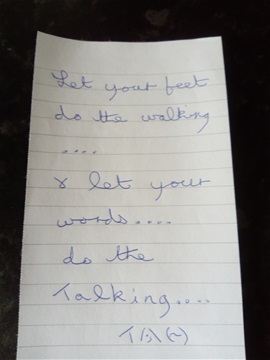 Let your feet
do the walking
....
& let your
words....
do the
Talking....